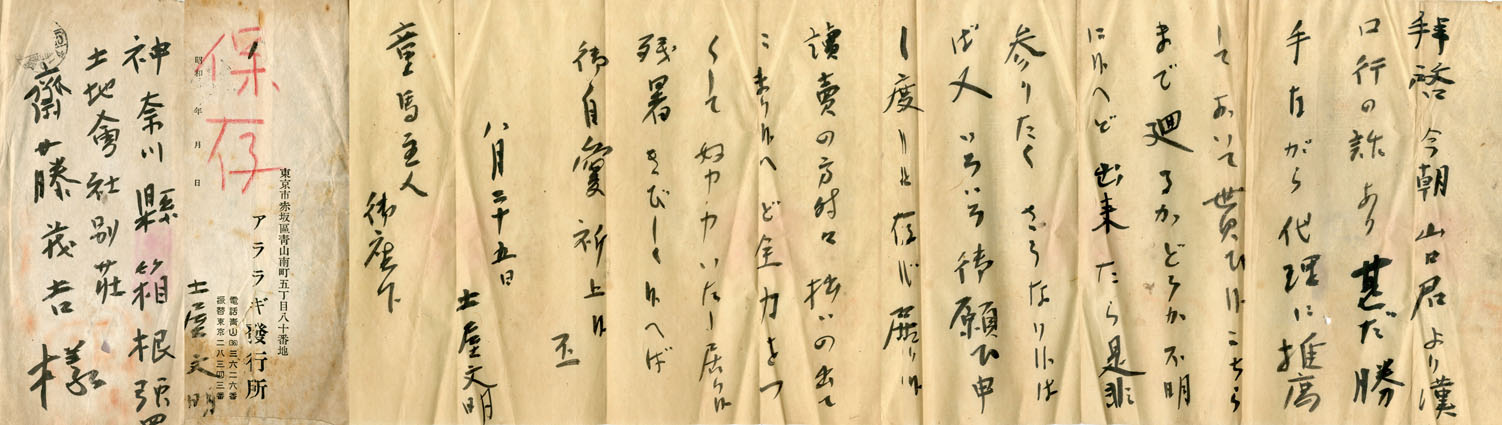 拝啓 今朝山口君より漢
口行の話あり 甚だ勝
手ながら代理に推薦
しておいて貰ひ候 こちら
まで廻るかどうか不明
に候へど出来たら是非
参りたく さうなり候は
ば又いろいろ御願ひ申
し度しと存じ居り候
讀賣の方時々拙いの出て
こまり候へど全力をつ
くして努力いたし居り候
残暑きびしく候へば
御自愛祈上候
八月二十五日
土屋文明
童馬主人
御座下
東京市赤坂區青山南町五丁目八十番地
アララギ發行所
電話青山(36)三六二六番
振替東京二八三四三番
土屋文明
保存
昭和 年 月 日
神奈川縣箱根強羅
土地會社別荘
齋藤茂吉様